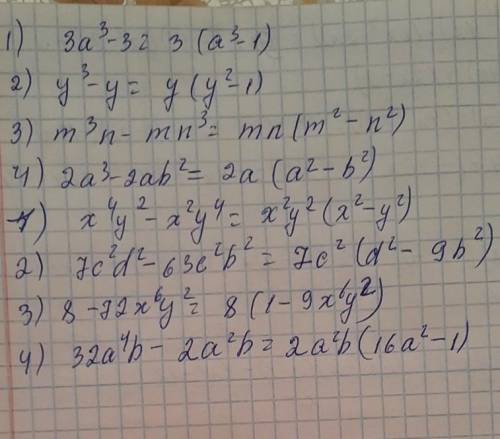 1) 3a³-3= 3 (a³-1)
2) y³-y= y (y²-1)
3) m³n - mn³= mn (m² - n²)
4) 2a³-2ab²= 2a (a²-b²)
1) x⁴y² - x²y⁴= x²y² (x²-y²)
2) 7c²d² - 63c²b² = 7c² (d² - 9b²)
3) 8 -72x⁶y²= 8 (1- 9x⁶y²)
4) 32a⁴b - 2a²b= 2a²b (16a²-1)